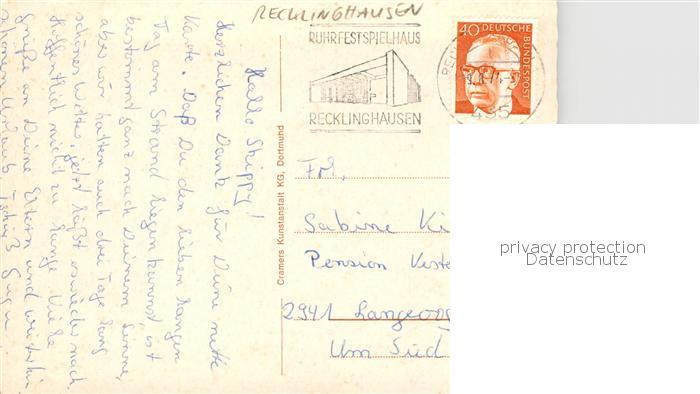 RECKLINGHAUSEN
RUHRFESTSPIELHAUS
RECKLINGHAUSEN
40 DEUTSCHE
BUNDESPOST
495
Hallo Skippy!
Herzlichen Dank für Deine nette
Karte. Daß Du den lieben langen
Tag am Strand liegen kannst, ist
bestimmt ganz nach Deinem Sinne,
aber wir hatten auch drei Tage lang
schönes Wetter, jetzt läßt es wieder nach.
Hoffentlich nicht zu lange. Viele
Grüße an Deine Eltern und weiterhin
schönen Urlaub
Cramers Kunstanstalt KG, Dortmund
Frl.
Sabine Ki
Pension
2941 Langeoog
Um Süd
privacy protection
Datenschutz